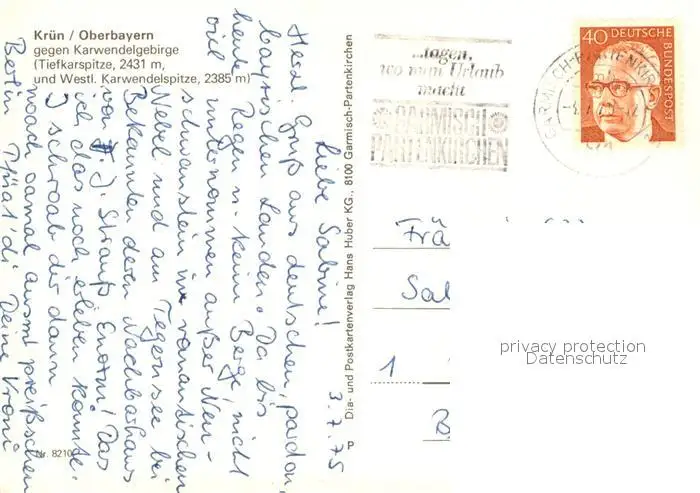 Krün / Oberbayern
gegen Karwendelgebirge
(Tiefkarspitze, 2431 m,
und Westl. Karwendelspitze, 2385 m)
3.7.75
Liebe Sabine!
Herzl. Gruß aus deutschen, pardon,
bayrischen Landen. Da bis
heute Regen u. keine Berge, nicht
viel unternommen außer Neu-
schwanstein im romantischen
Nebel und am Tegernsee bei
Bekannten deren Nachbarhaus
von F. J. Strauß. Enorm! Das
ich das noch erleben konnte.
I schroab dir dann
noach oamal ausm preißschen
Berlin. Pfüat' di Deine Vroni
Nr. 8210
P
Dia- und Postkartenverlag Hans Huber KG., 8100 Garmisch-Partenkirchen
...tagen,
wo man Urlaub
macht
GARMISCH
PARTENKIRCHEN
GARMISCH-PARTENKIRCHEN
40 DEUTSCHE
BUNDESPOST
Frä
Sab
1
B
privacy protection
Datenschutz